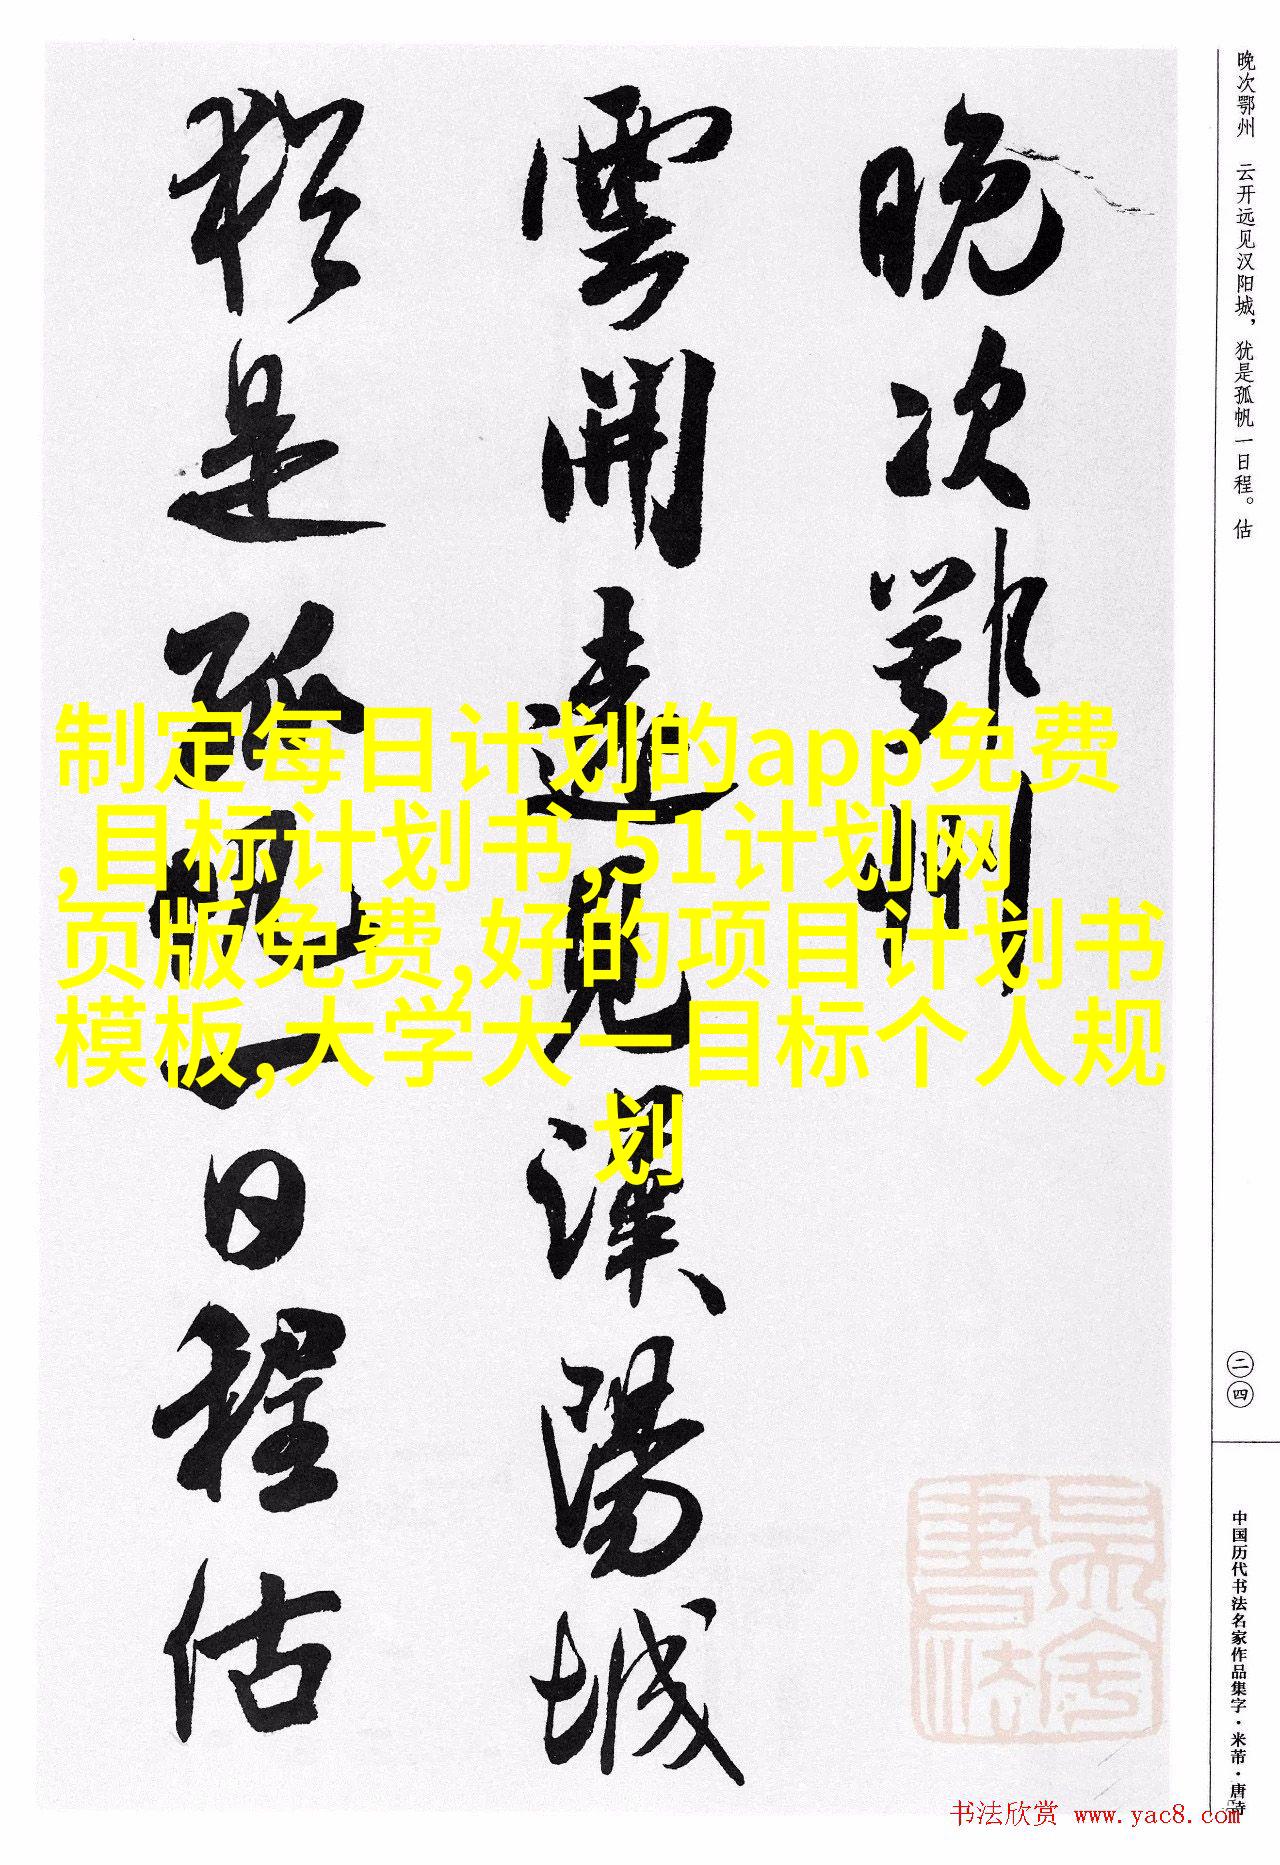 晚次鄂州
雲開遠見漢陽城
猶是孤帆一日程估
制定每日计划的app免费
,目标计划书,51计划网
页版免费,好的项目计划书
模板,大学大一目标个人规
划
晚次鄂州 云开远见汉阳城，犹是孤帆一日程。估
二四
中国历代书法名家作品集字·米芾·唐诗
书法欣赏 www.yac8.com